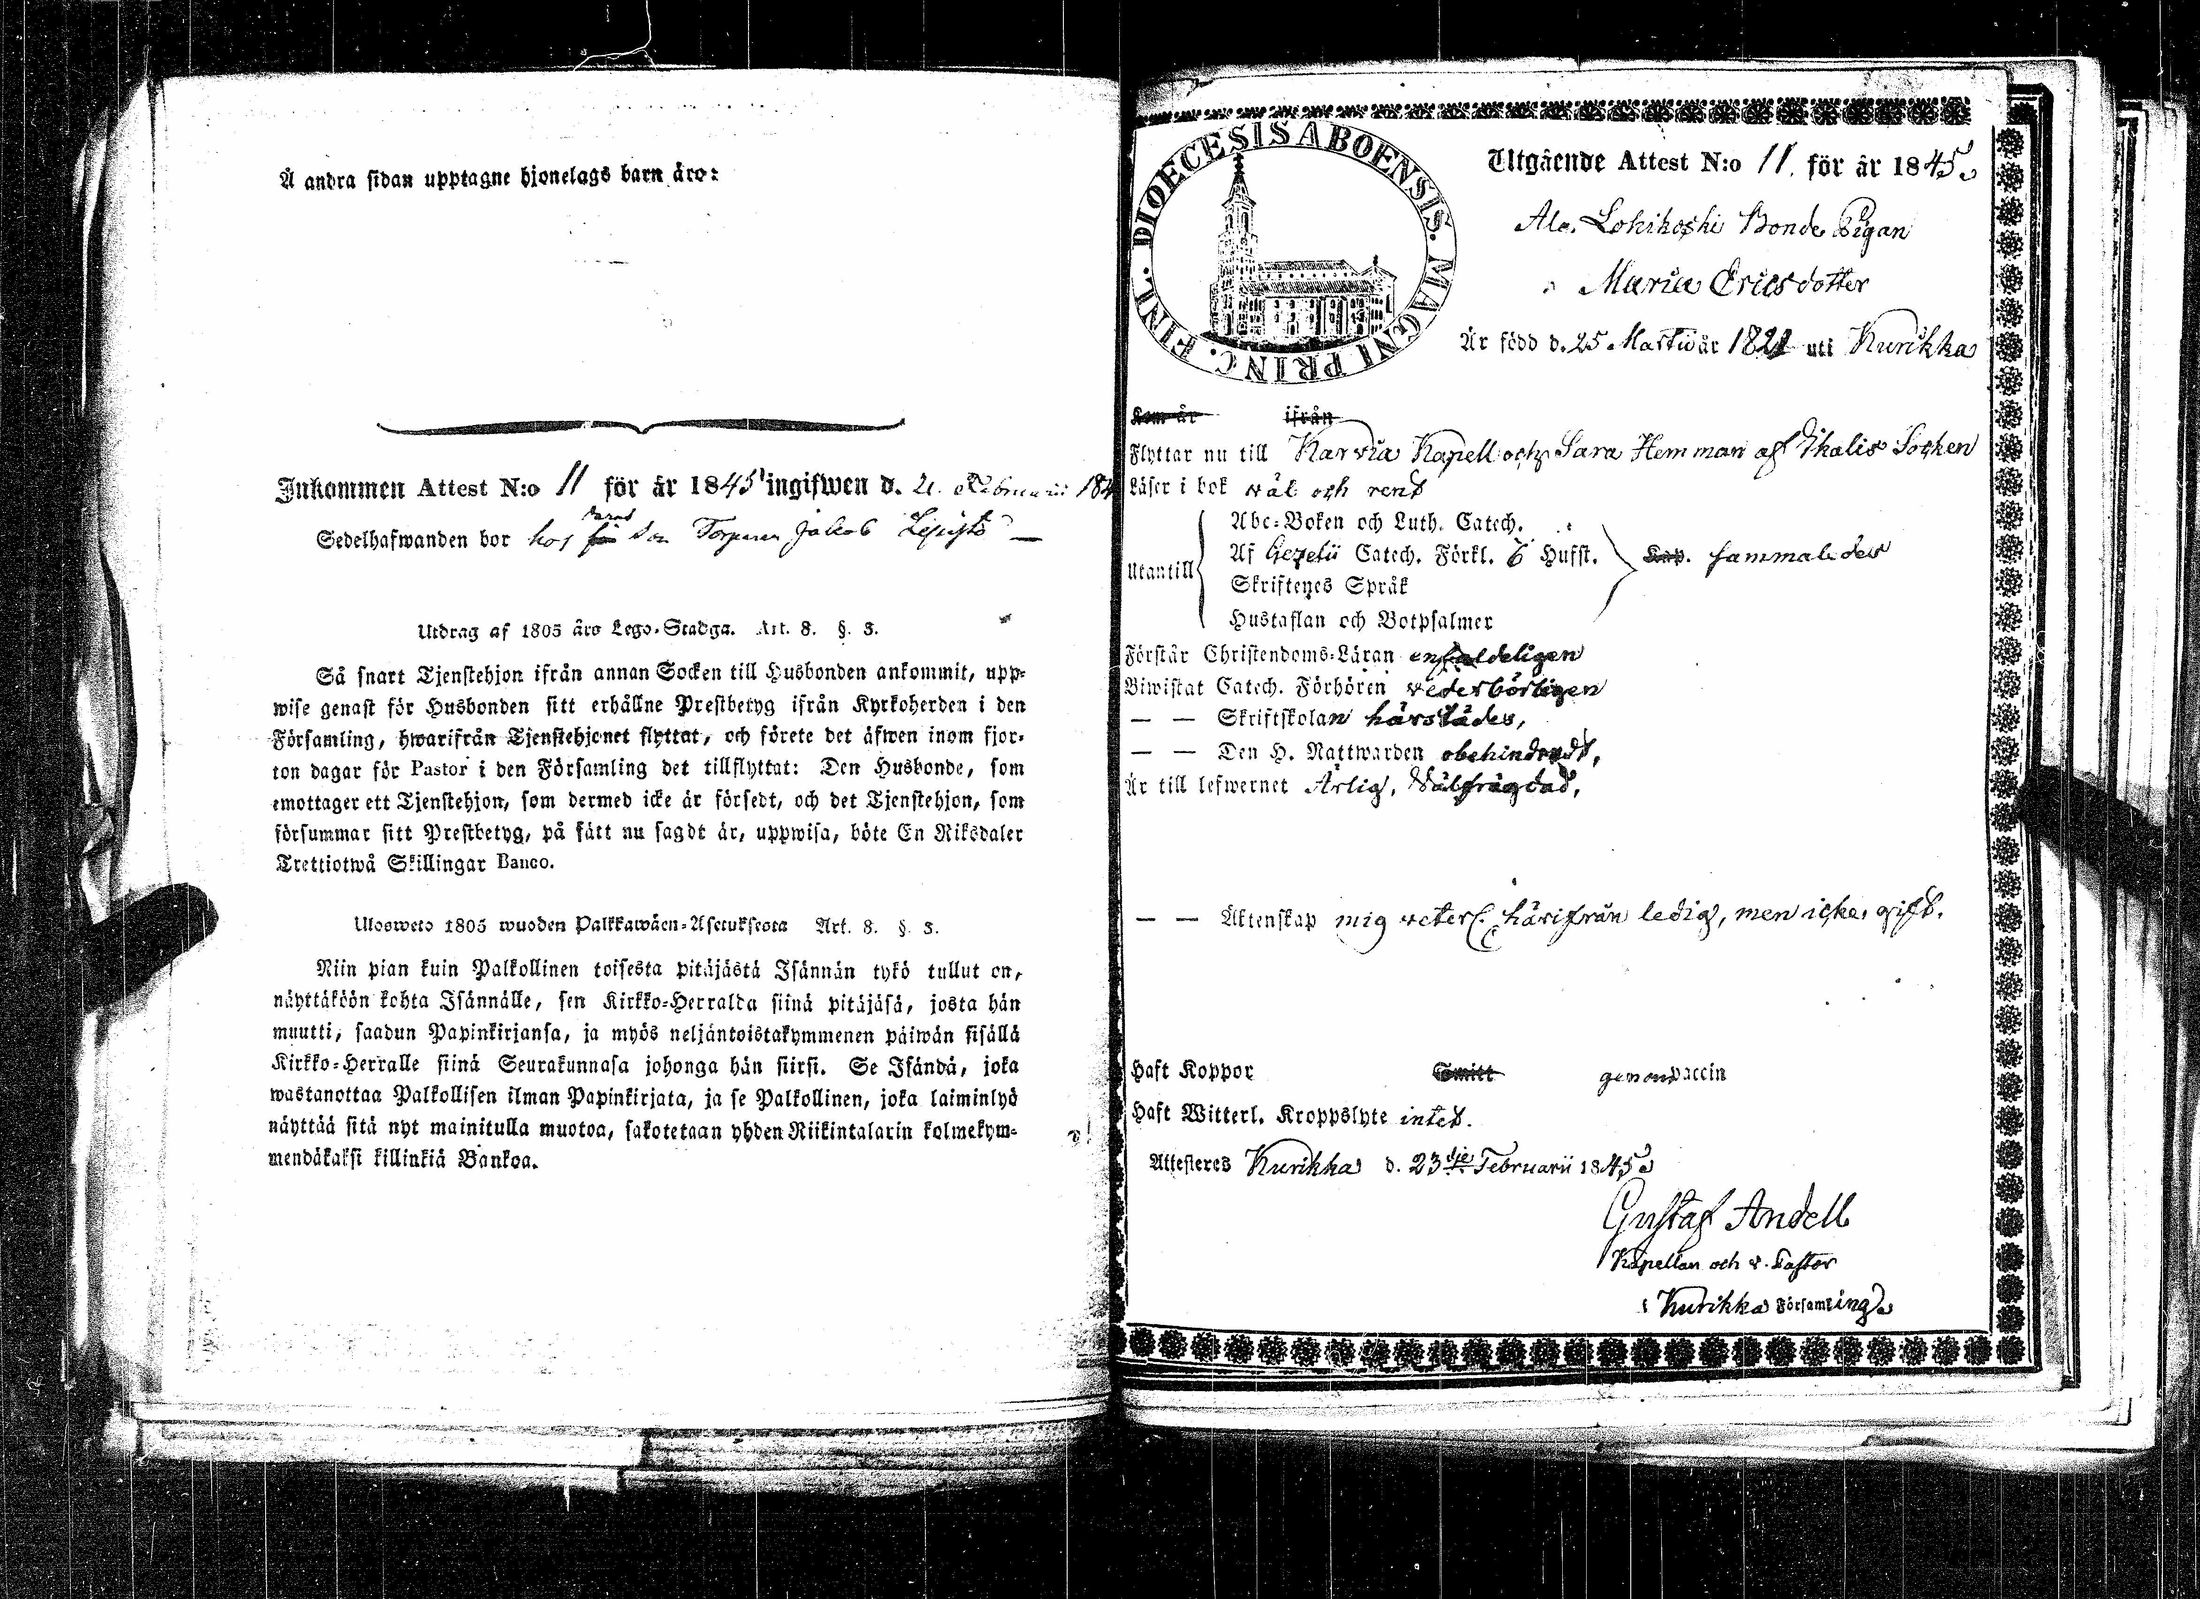 Å andra sidan upptagne hjonelags barn äro:
Inkommen Attest N:o 11 för år 1845 ingifwen d.
Sedelhafwanden bor hos Torparen Jakob
Utdrag af 1805 års Lego-Stadga. Art. 8. §. 3.
Så snart Tjenstehjon ifrån annan Socken till Husbonden ankommit, upp-
wise genast för Husbonden sitt erhållne Prestbetyg ifrån Kyrkoherden i den
Församling, hwarifrån Tjenstehjonet flyttat, och förete det äfwen inom fjor-
ton dagar för Pastor i den Församling det tillflyttat: Den Husbonde, som
emottager ett Tjenstehjon, som dermed icke är försedt, och det Tjenstehjon, som
försummar sitt Prestbetyg, på sätt nu sagdt är, uppwisa, böte En Riksdaler
Trettiotwå Skillingar Banco.
Ulosweto 1805 wuoden Palkkawäen-Asetuksesta Art. 8. §. 3.
Niin pian kuin Palkollinen toisesta pitäjästä Isännän tykö tullut on,
näyttäköön kohta Isännälle, sen Kirkko-Herralda siinä pitäjäsä, josta hän
muutti, saadun Papinkirjansa, ja myös neljäntoistakymmenen päiwän sisällä
Kirkko-Herralle siinä Seurakunnasa johonga hän siirsi. Se Isändä, joka
wastanottaa Palkollisen ilman Papinkirjata, ja se Palkollinen, joka laiminlyö
näyttää sitä nyt mainitulla muotoa, sakotetaan yhden Riikintalarin kolmekym-
mendäkaksi killinkiä Bankoa.
DIOECESIS ABOENSIS. MAGNI PRINC. FINL.
Utgående Attest N:o 11. för år 1845.
Lohikoski Bonde Pigan
Maria Ericsdotter
Är född d. 25 Martii år 1821 uti Kurikka
Kom år ifrån
Flyttar nu till Karvia Kapell och Sara Hemman af Ikalis Socken
Läser i bok wäl och rent
Utantill
Abc-Boken och Luth. Catech.
Af Gezelii Catech. Förkl. 6 Hufst.
Kap. sammaledes
Skriftenes Språk
Hustaflan och Botpsalmer
Förstår Christendoms-Läran enfaldeligen
Biwistat Catech. Förhören wederbörligen
— — Skriftskolan härstädes,
— — Den H. Nattwarden obehindradt,
Är till lefwernet Ärlig, Wälfrägdad,
— — Äktenskap mig veterl. härifrån ledig, men icke gift.
Haft Koppor Smitt genom vaccin
Haft Witterl. Kroppslyte intet.
Attesteres Kurikka d. 23dje Februarii 1845.
Gustaf Andell
Kapellan och v. Pastor
i Kurikka Församling.